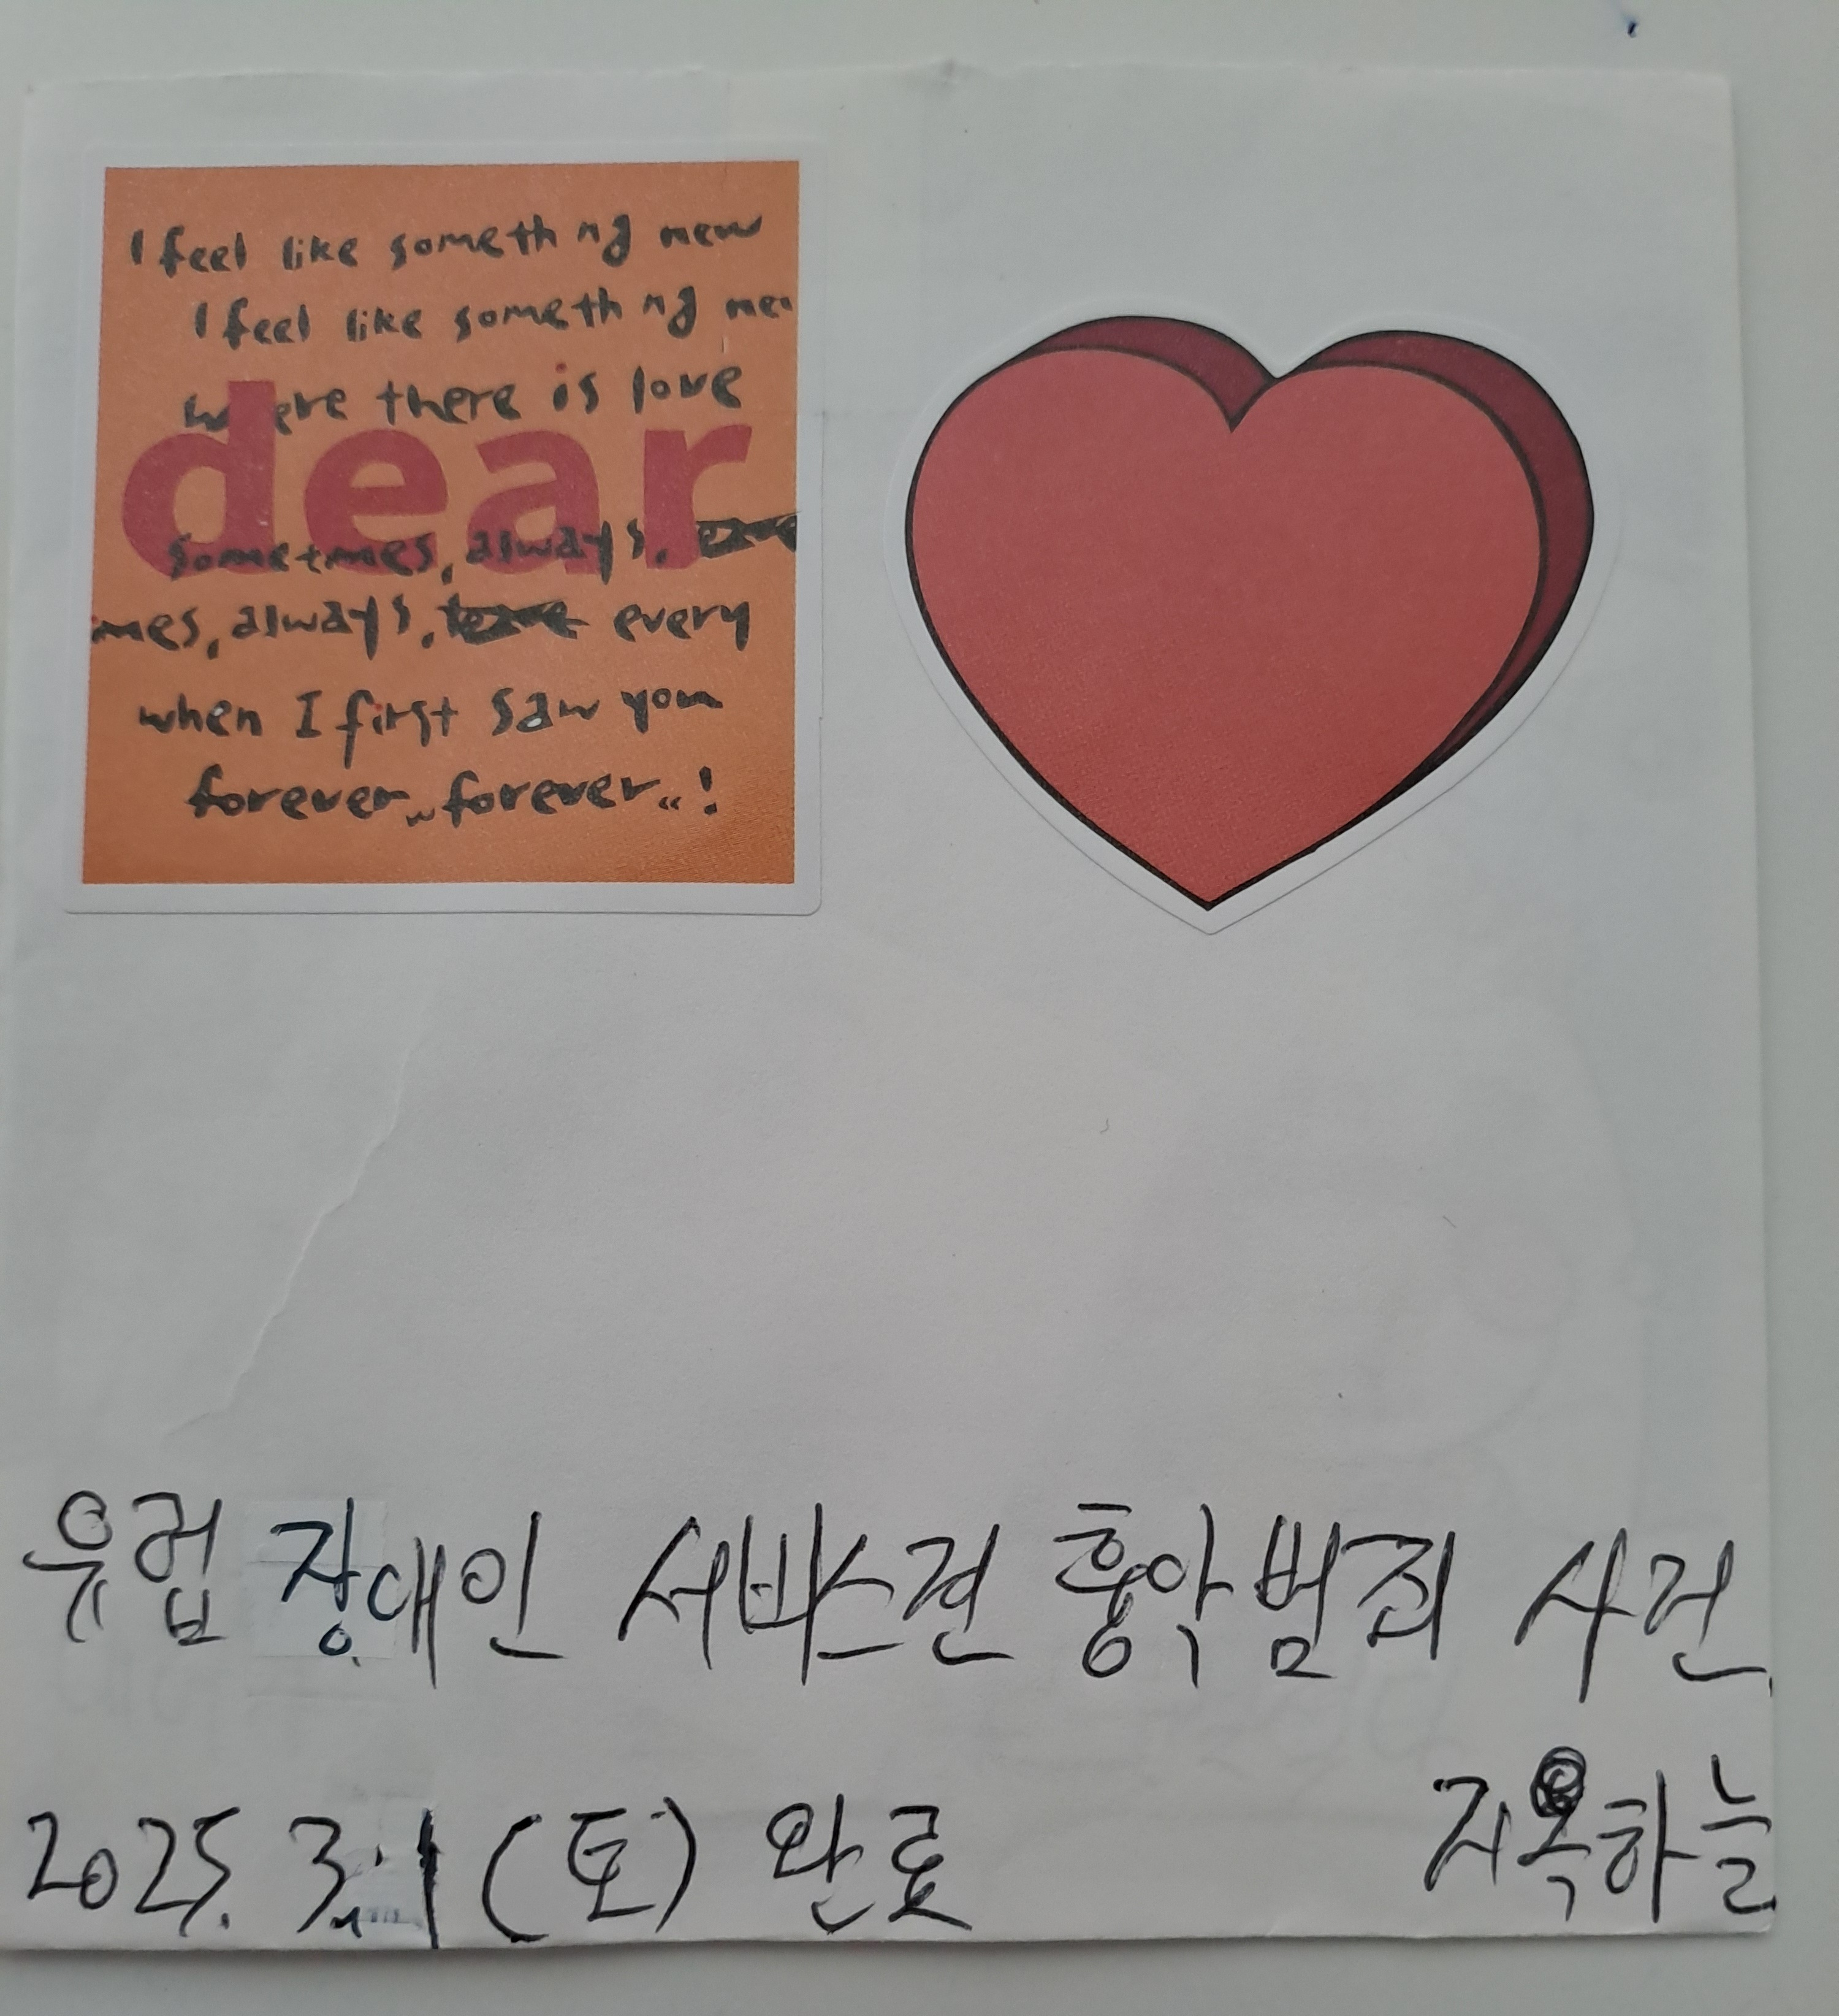 I feel like someth ng new
I feel like someth ng new
where there is love
dear
sometimes, always,
imes, always, every
when I first saw you
forever,, forever..!
유럽 장애인 서비스견 흉악범죄 사건.
2025. 3. 1 (토) 완료
지옥하늘